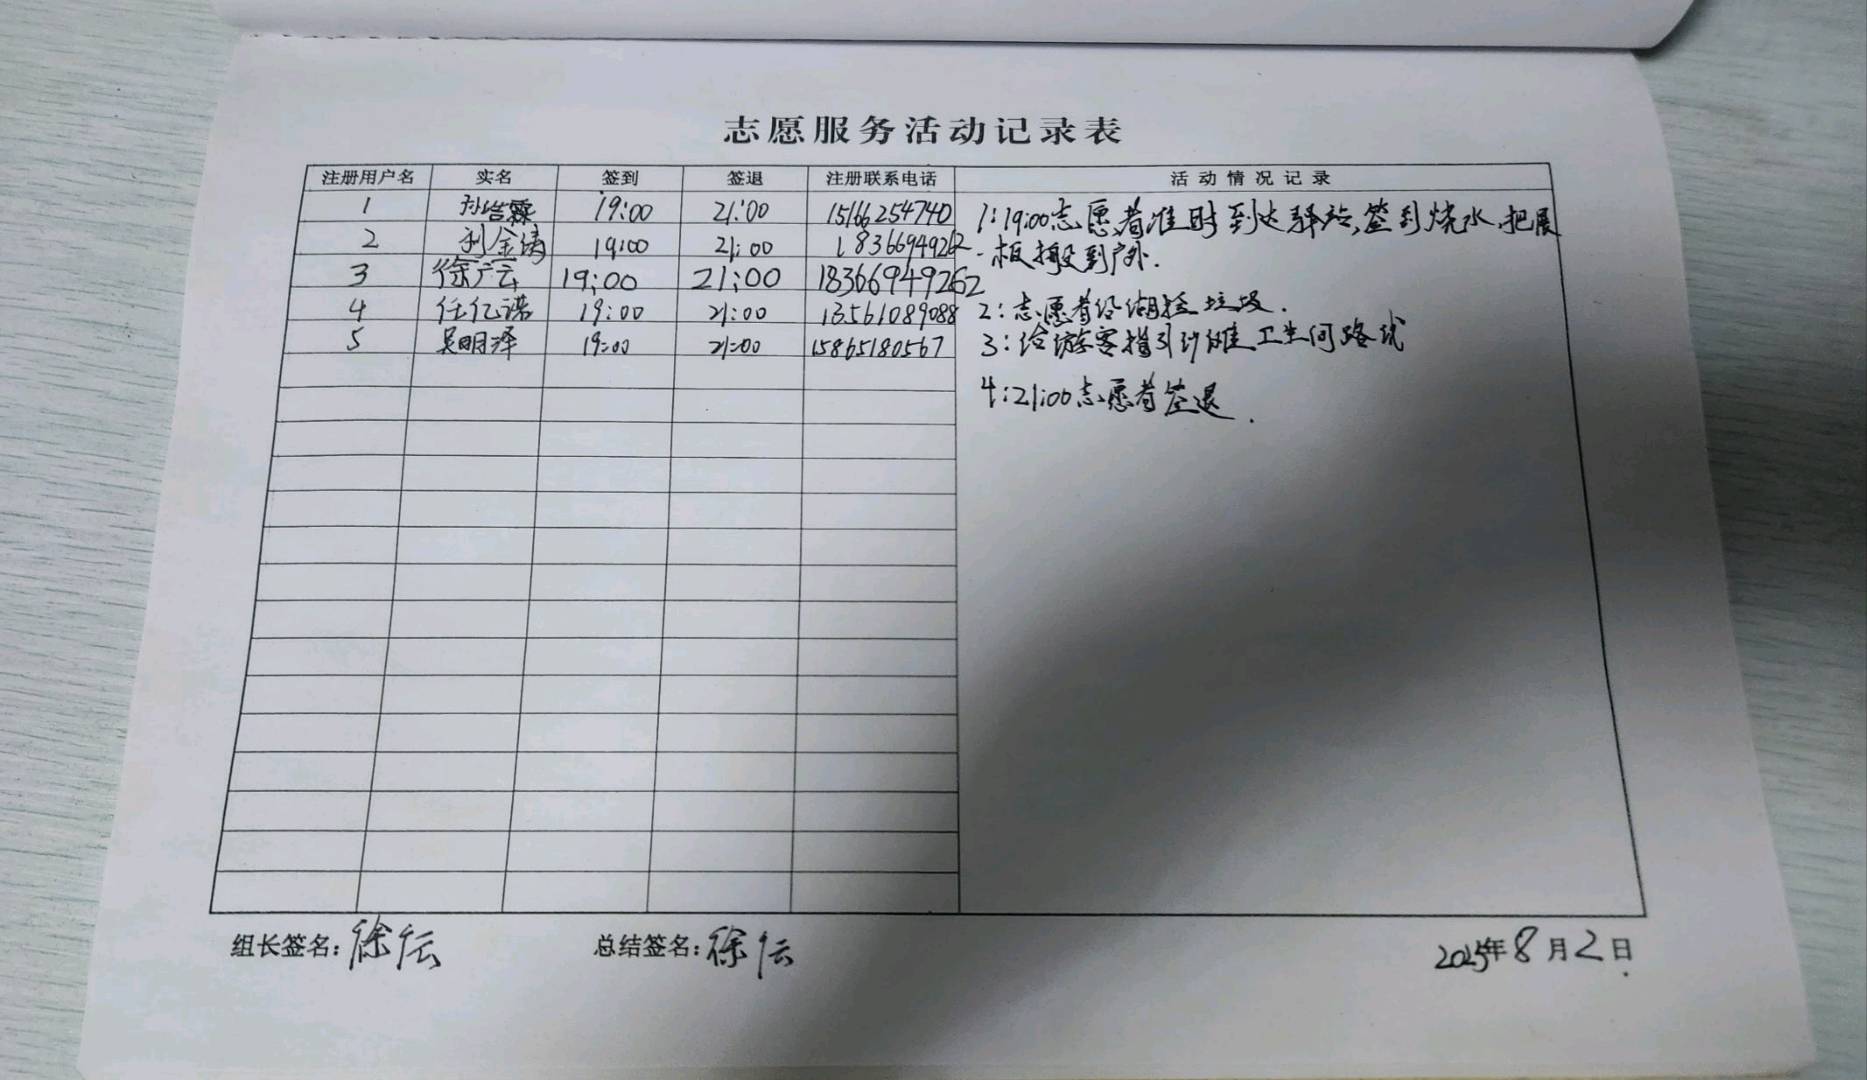 志愿服务活动记录表
注册用户名 实名 签到 签退 注册联系电话 活动情况记录
1 孙皓霖 19:00 21:00 15166254740
2 金 19:00 21:00 18366949262
3 徐广云 19:00 21:00 18366949262
4 任亿诺 19:00 21:00 13561089088
5 吴明泽 19:00 21:00 15865180567
1:19:00志愿者准时到达驿站,签到烧水,把展
板搬到户外.
2:志愿者沿湖捡垃圾.
3:给游客指引沙滩卫生间路线
4:21:00志愿者签退.
组长签名:徐 总结签名:徐 2025年8月2日